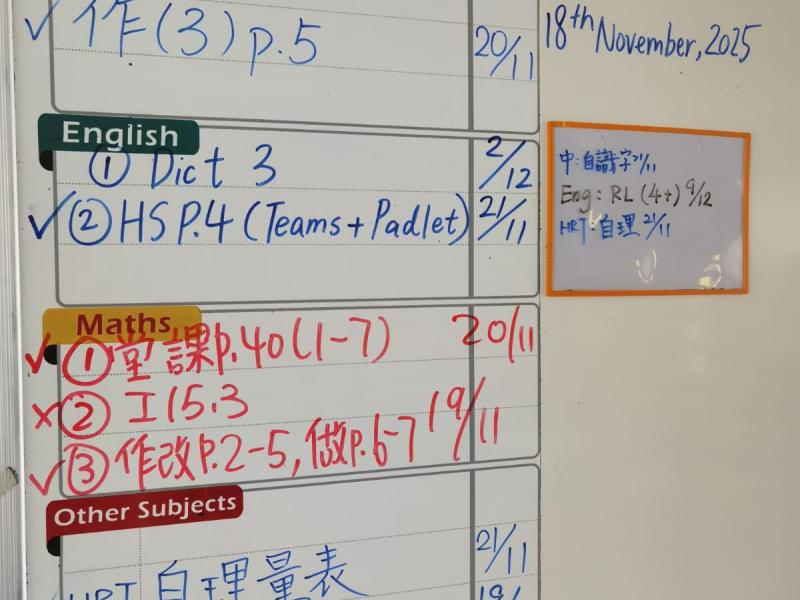 ✓ 作(3) p.5 20/11
18th November, 2025
English
① Dict 3 2/12
✓ ② HS P.4 (Teams + Padlet) 21/11
中: 自識字 21/11
Eng: RL (4+) 9/12
HRT: 自理 21/11
Maths
✓ ① 堂課p.40(1-7) 20/11
× ② 工15.3
✓ ③ 作改p.2-5, 做p.6-7 19/11
Other Subjects
HRT 自理量表 21/11
19/